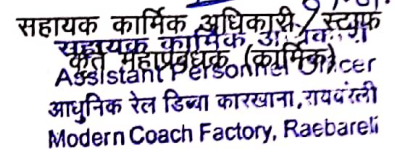 सहायक कार्मिक अधिकारी / स्टाफ
सहायक कार्मिक
कृते महाप्रबंधक (कार्मिक)
Assistant Personnel Officer
आधुनिक रेल डिब्बा कारखाना, रायबरेली
Modern Coach Factory, Raebareli